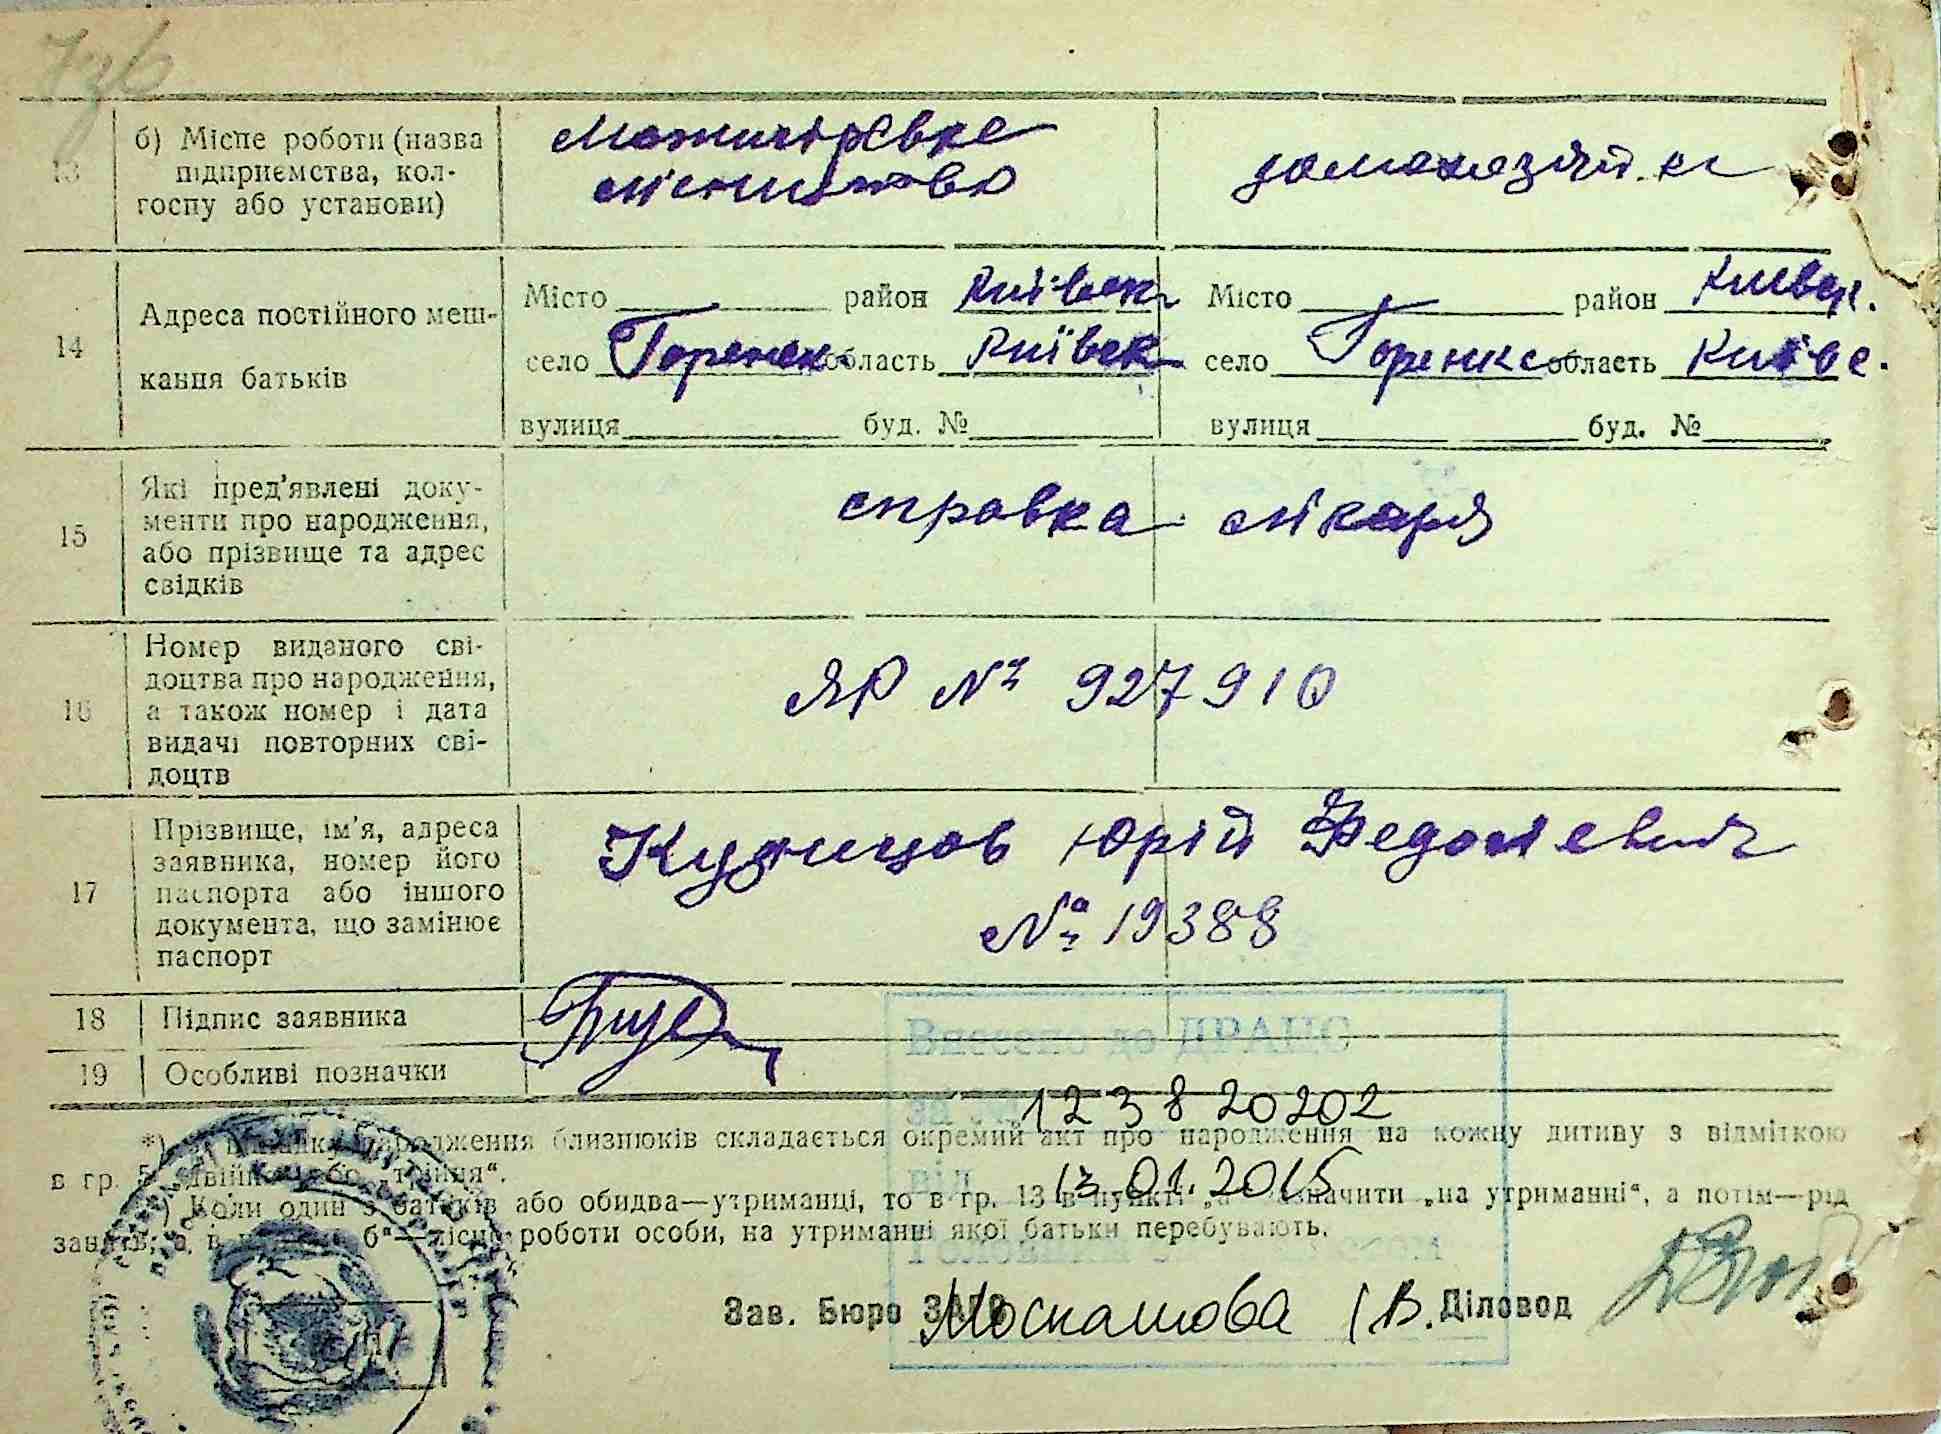 13 б) Місце роботи (назва підприємства, колгоспу або установи)
лісництво
домохазяй.
14 Адреса постійного мешкання батьків
Місто район Київськ
село Горенск область Київск
вулиця буд. №
Місто район Києвск.
село Горенкс область Київс.
вулиця буд. №
15 Які пред'явлені документи про народження, або прізвище та адрес свідків
справка лікаря
16 Номер виданого свідоцтва про народження, а також номер і дата видачі повторних свідоцтв
ЯР № 927910
17 Прізвище, ім'я, адреса заявника, номер його паспорта або іншого документа, що замінює паспорт
Юрій
№ 19388
18 Підпис заявника
19 Особливі позначки
Внесено до ДРАЦС
за № 123820202
від 13.01.2015
*) народження близнюків складається окремий акт про народження на кожну дитину з відміткою
в гр. 5 „двійня" або „трійня".
) Коли один з батьків або обидва—утриманці, то в гр. 13 в пункті „а" зазначити „на утриманні", а потім—рід
занять, а в б"—місце роботи особи, на утриманні якої батьки перебувають.
Зав. Бюро ЗАГС Діловод